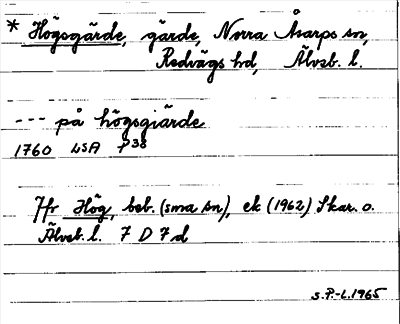 * Högsgärde, gärde, Norra Åsarps sn,
Redvägs hd, Älvsb. l.
--- på högsgiärde
1760 LSA P38
Jfr Hög, beb. (sma sn), ek (1962) Skar. o.
Älvsb. l. 7 D 7 d
S.P.-L.1965